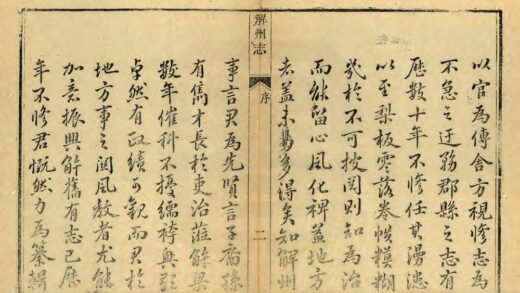 以官為傳舍方視修志為
不急之迂務郡縣之志有
歷數十年不修任其漫漶
以至梨板零落卷帙糢糊
幾於不可披閱則知為治
而能留心風化裨益地方
者蓋未易多得矣知解州
解州志
序
二
事言君為先賢言子裔孫
有雋才長於吏治蒞解梁
數年催科不擾繻袴興歌
卓然有政績可觀而君於
地方事之關風教者尤能
加意振興解舊有志已歷
年不修君慨然力為纂輯